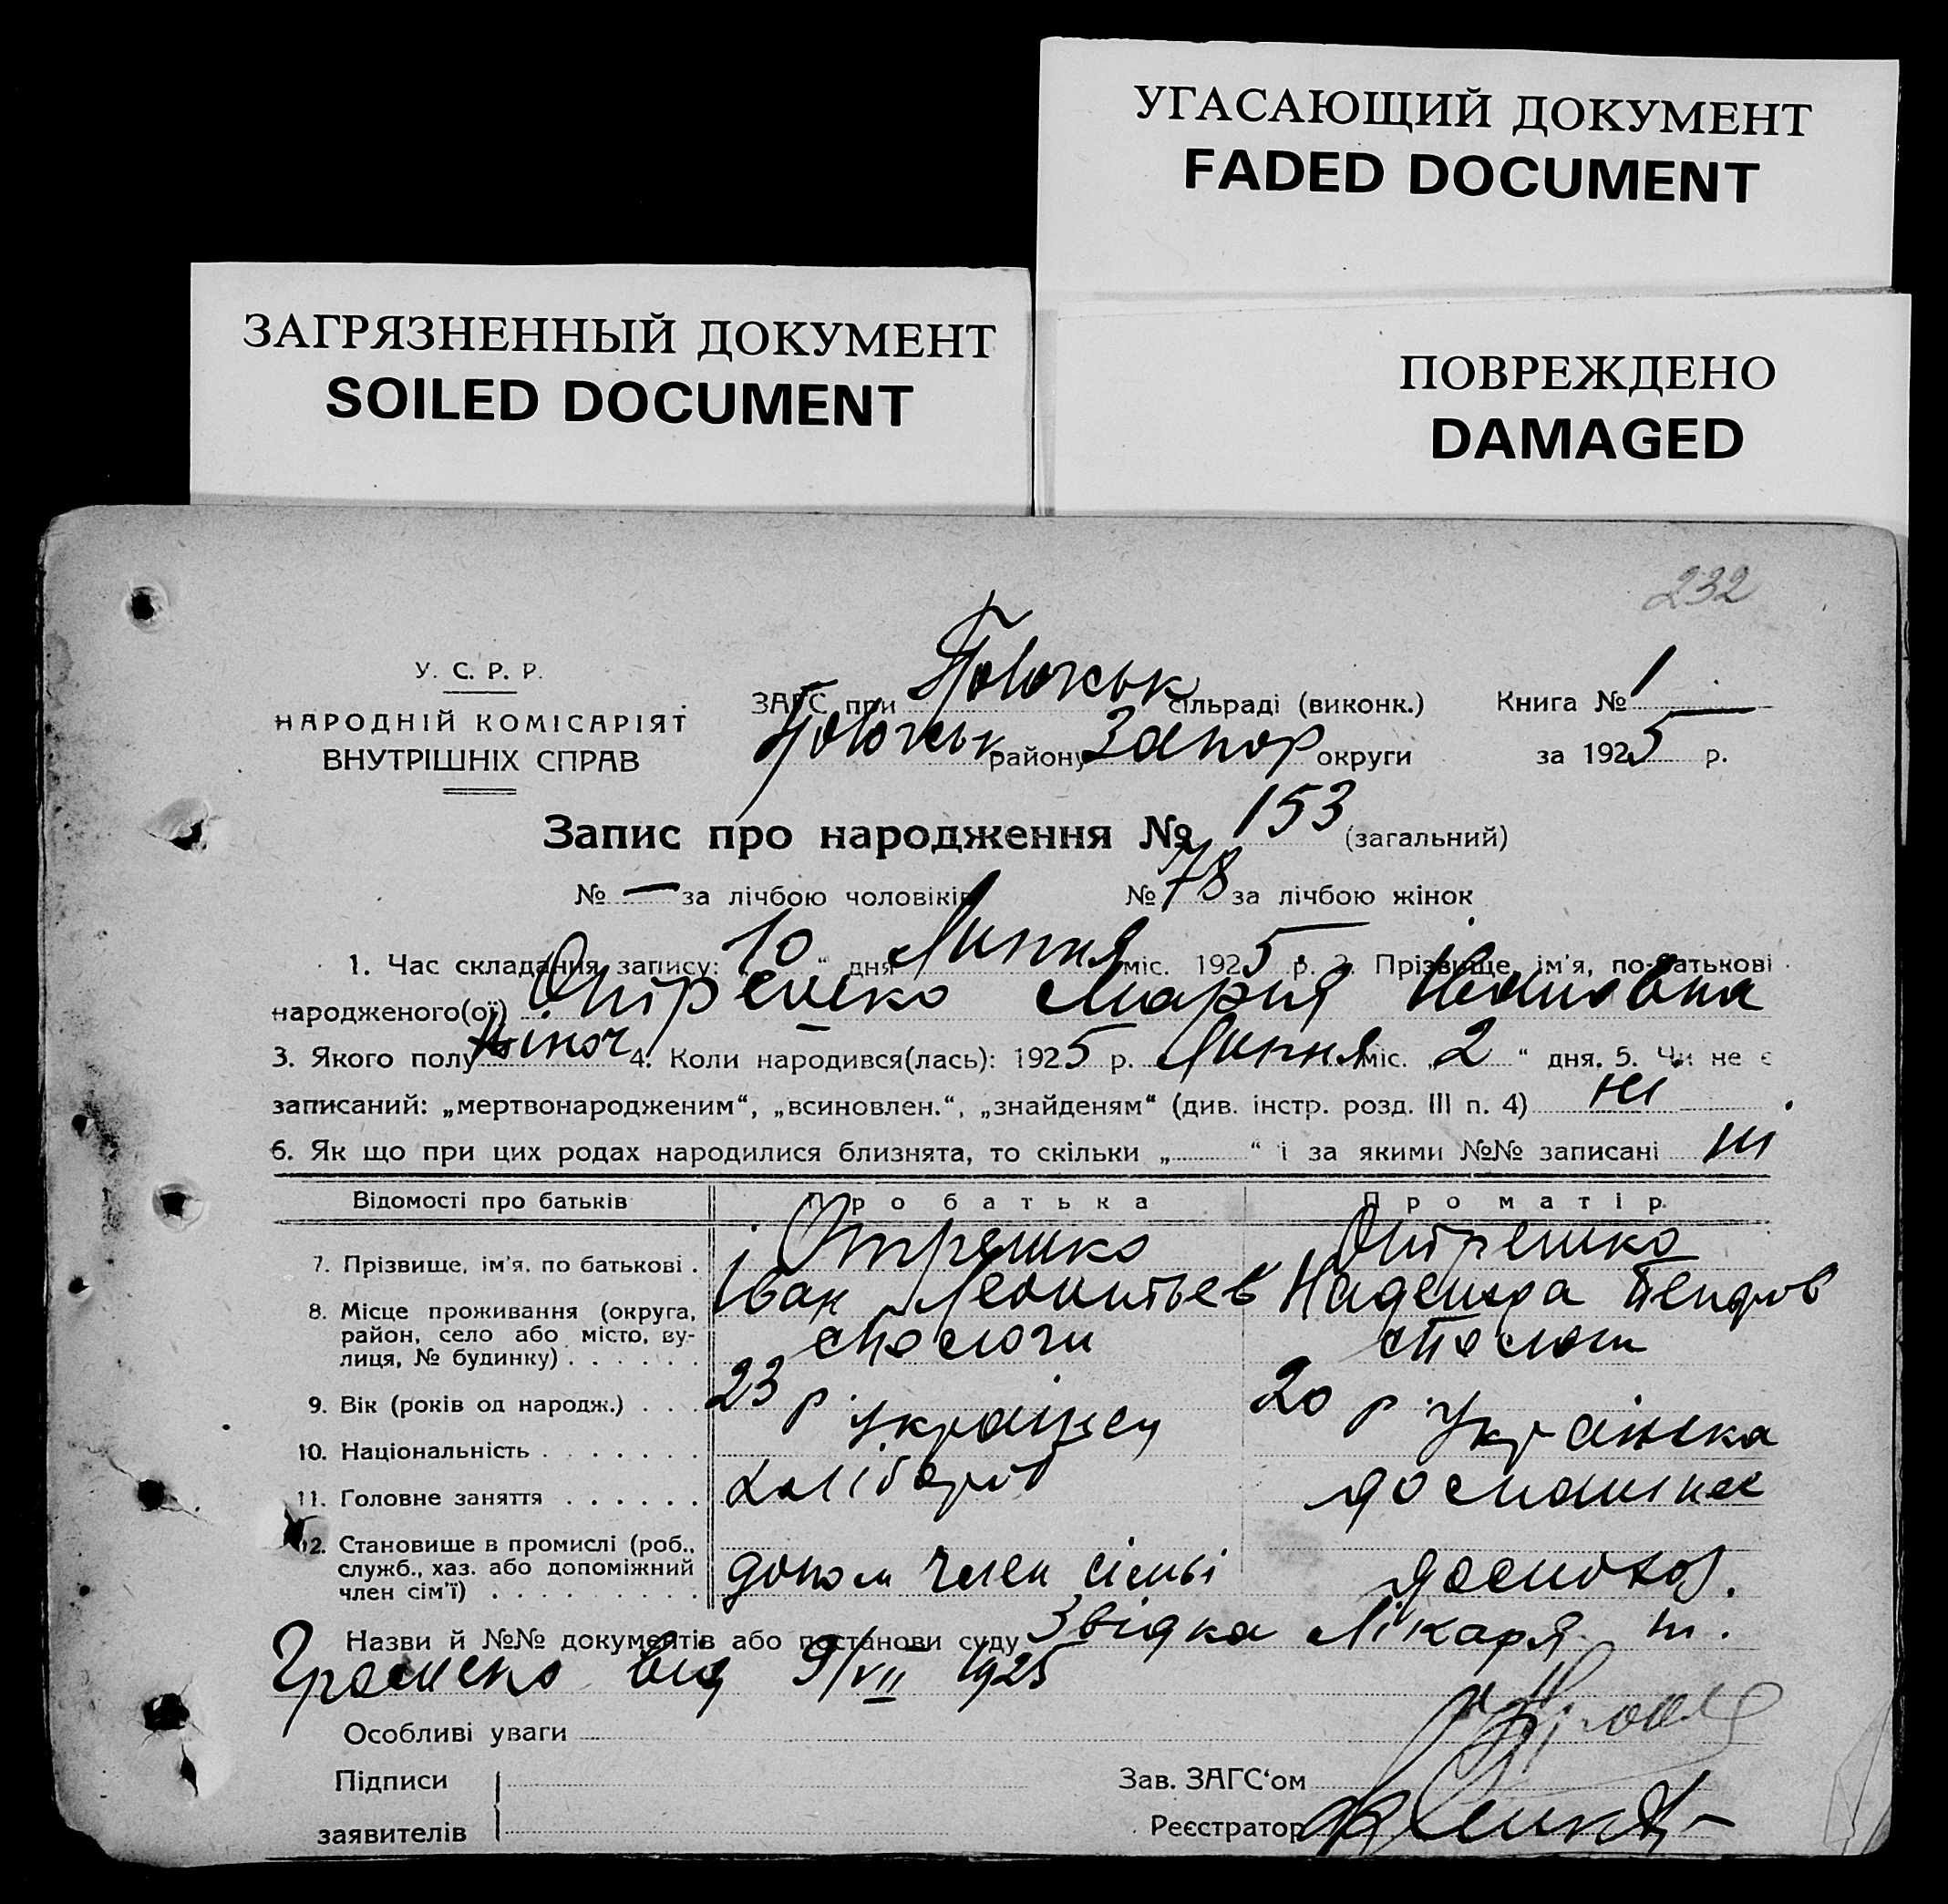 УГАСАЮЩИЙ ДОКУМЕНТ
FADED DOCUMENT
ЗАГРЯЗНЕННЫЙ ДОКУМЕНТ
SOILED DOCUMENT
ПОВРЕЖДЕНО
DAMAGED
232
У. С. Р. Р.
НАРОДНІЙ КОМІСАРІЯТ
ВНУТРІШНІХ СПРАВ
ЗАГС при Пологськ сільраді (виконк.) Книга № 1
Пологськ району Запор округи за 1925 р.
Запис про народження № 153 (загальний)
№ — за лічбою чоловіків № 78 за лічбою жінок
1. Час складання запису: „10“ дня Липня міс. 1925 р. 2. Прізвище, ім'я, по-батькові
народженого(ої) Отрешко Мария Ивановна
3. Якого полу жіноч 4. Коли народився(лась): 1925 р. Липня міс. „2“ дня. 5. Чи не є
записаний: „мертвонародженим“, „всиновлен.“, „знайденям“ (див. інстр. розд. III п. 4) ні
6. Як що при цих родах народилися близнята, то скільки „ “ і за якими №№ записані ні
Відомості про батьків Про батька Про матір
7. Прізвище, ім'я, по батькові . Отрешко Отрешко
Іван Леонтьев Надежда
8. Місце проживання (округа, район, село або місто, вулиця, № будинку) . . . . . . ст Пологи ст Пологи
9. Вік (років од народж.) . . . 23 р 20 р
10. Національність . . . . . . . Українец Українка
11. Головне заняття . . . . . . хлібороб домашнє
12. Становище в промислі (роб., служб., хаз. або допоміжний член сім'ї) . . . . . . . . . допом член сімьі домогос.
Назви й №№ документів або постанови суду Звідка Лікаря
від 9/VII 1925
Особливі уваги
Підписи
заявителів
Зав. ЗАГС'ом
Реєстратор